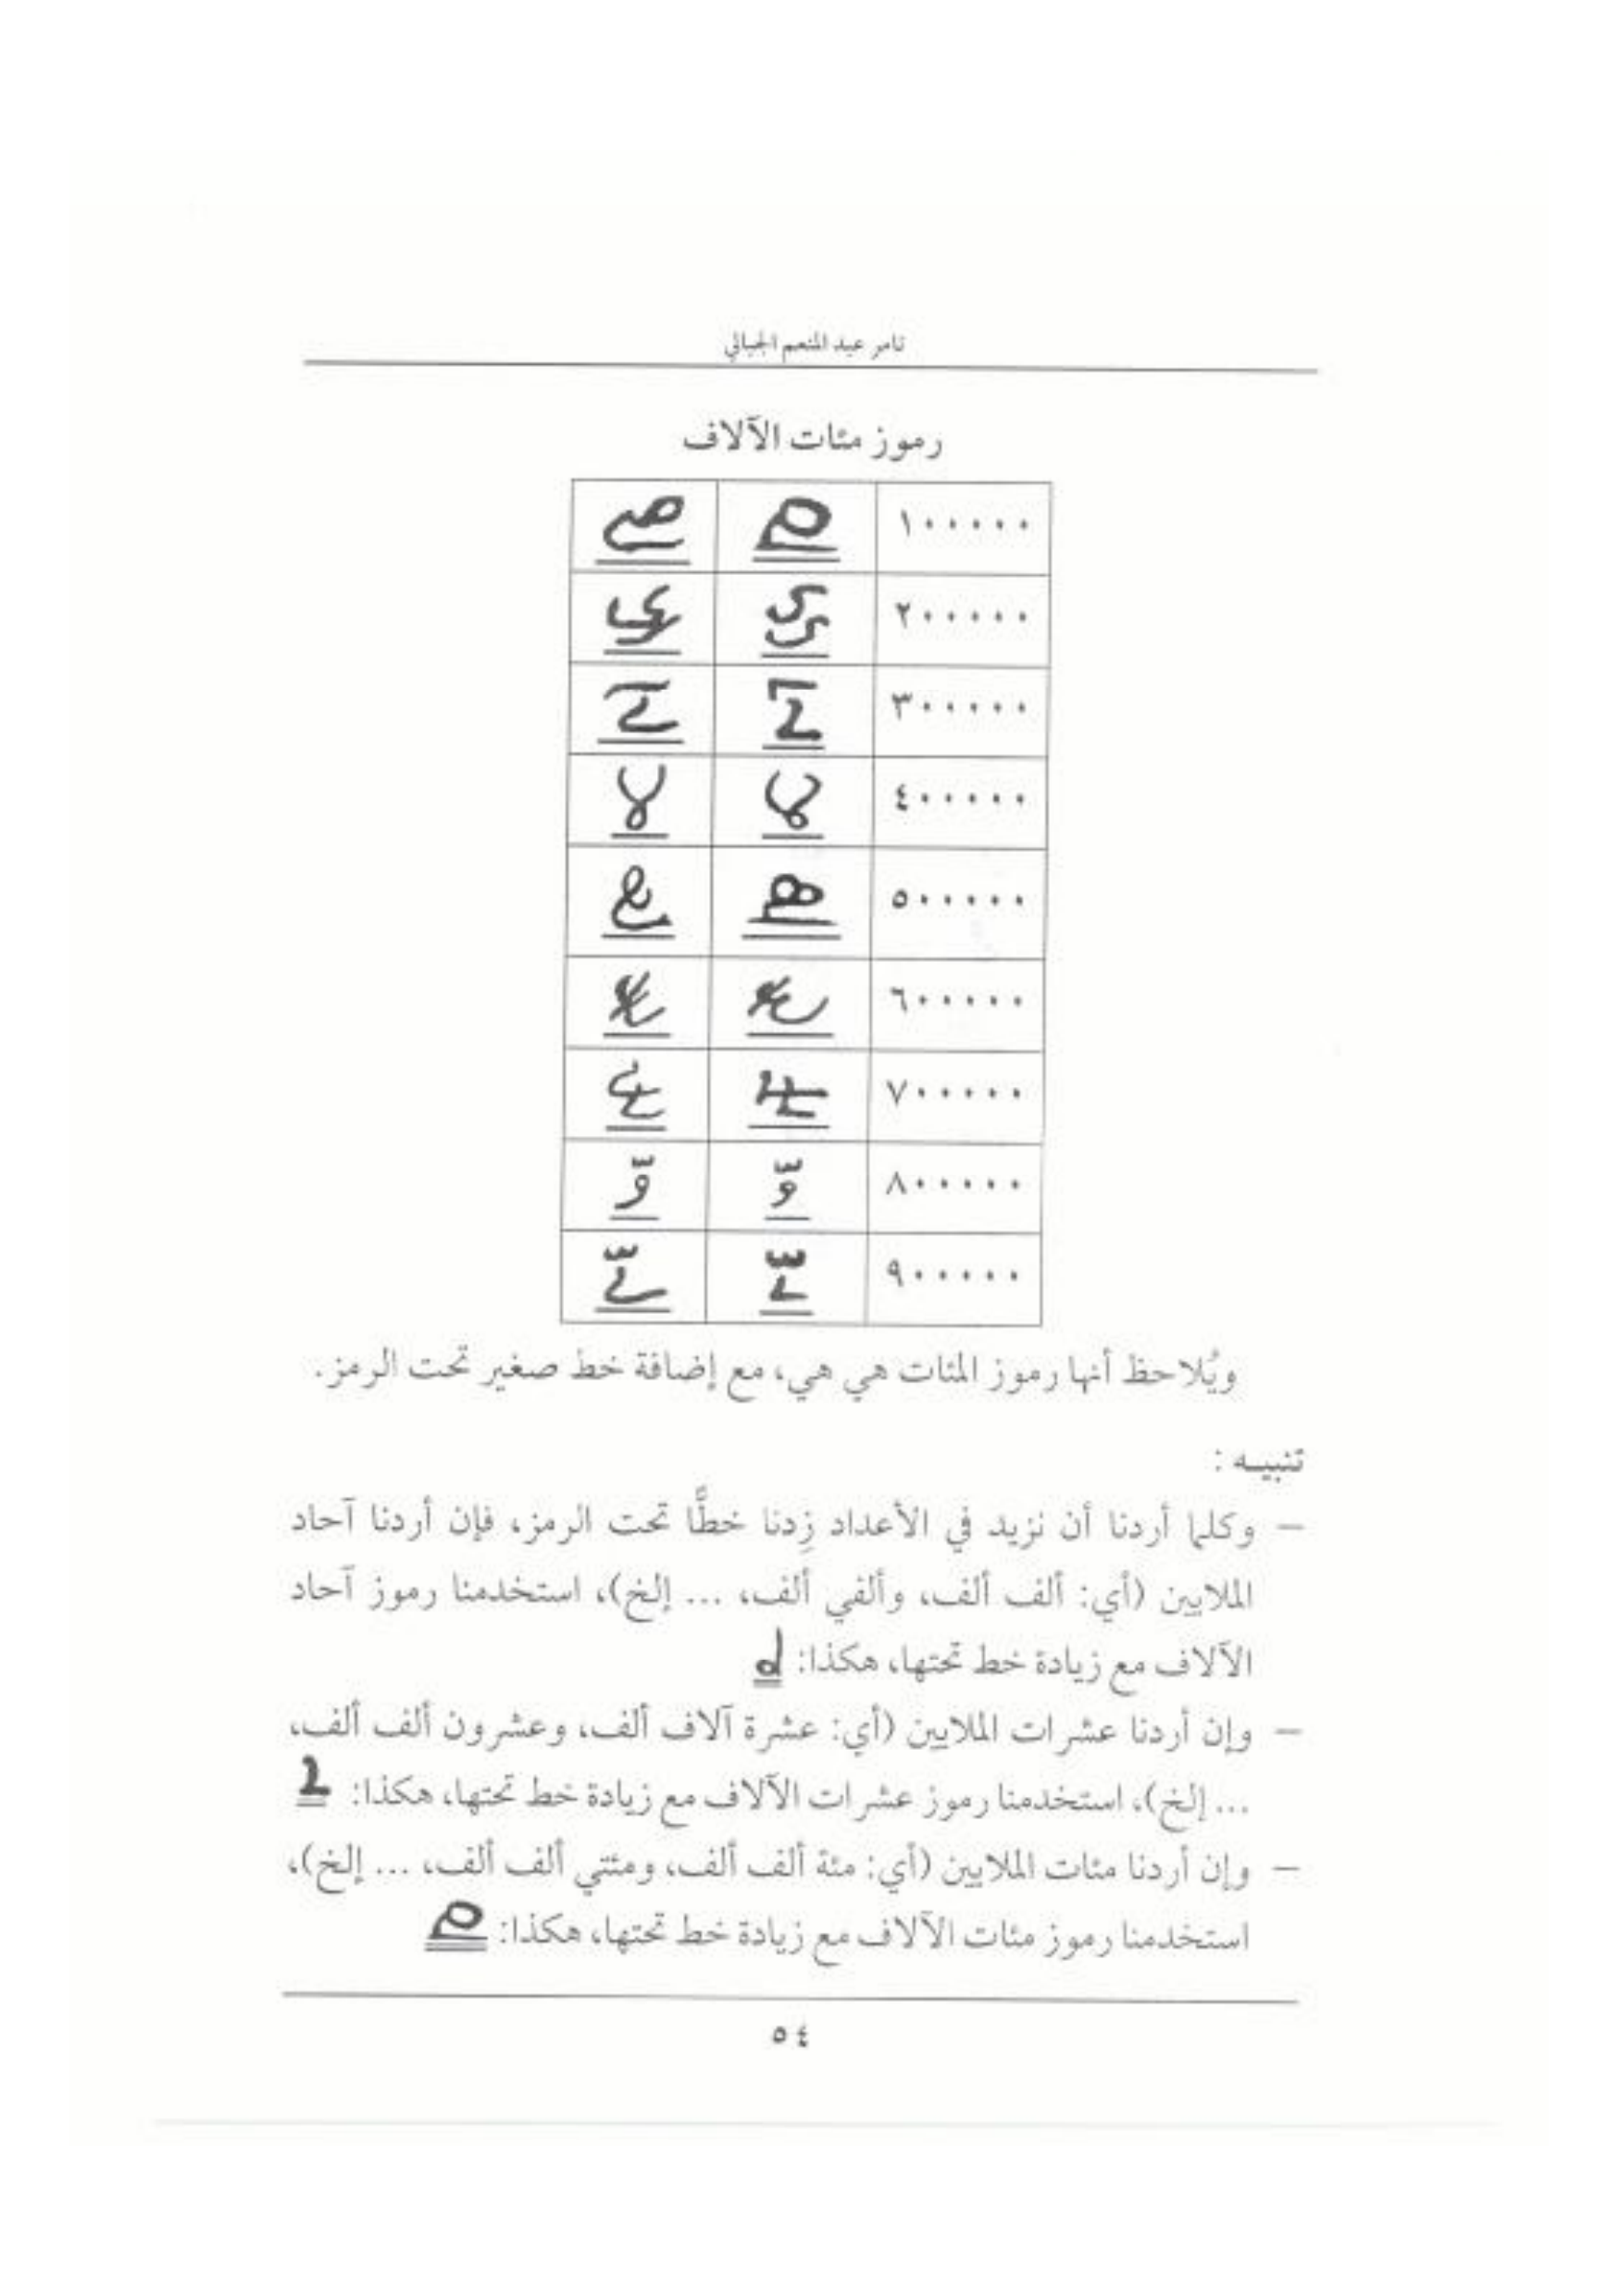 تامر عبد المنعم الجبالي
رموز مئات الآلاف
١٠٠٠٠٠
٢٠٠٠٠٠
٣٠٠٠٠٠
٤٠٠٠٠٠
٥٠٠٠٠٠
٦٠٠٠٠٠
٧٠٠٠٠٠
٨٠٠٠٠٠
٩٠٠٠٠٠
ويُلاحظ أنها رموز المئات هي هي، مع إضافة خط صغير تحت الرمز.
تنبيه :
– وكلما أردنا أن نزيد في الأعداد زِدنا خطًّا تحت الرمز، فإن أردنا آحاد
الملايين (أي: ألف ألف، وألفي ألف، ... إلخ)، استخدمنا رموز آحاد
الآلاف مع زيادة خط تحتها، هكذا:
– وإن أردنا عشرات الملايين (أي: عشرة آلاف ألف، وعشرون ألف ألف،
... إلخ)، استخدمنا رموز عشرات الآلاف مع زيادة خط تحتها، هكذا:
– وإن أردنا مئات الملايين (أي: مئة ألف ألف، ومئتي ألف ألف، ... إلخ)،
استخدمنا رموز مئات الآلاف مع زيادة خط تحتها، هكذا:
٥٤